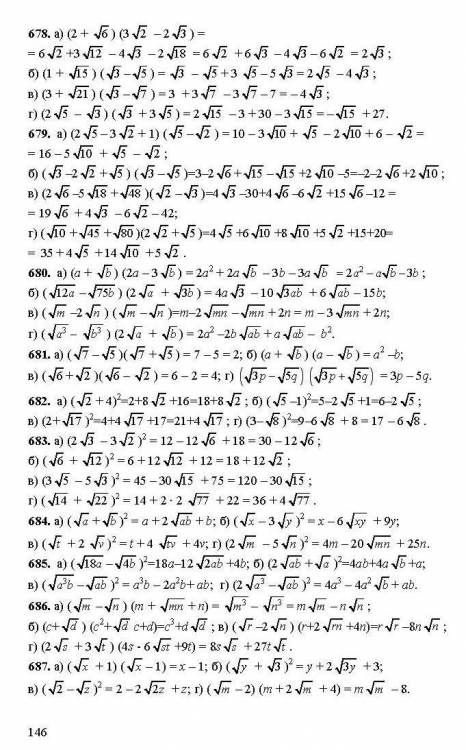 678. а) (2 + √6) (3√2 – 2√3) =
= 6√2 +3√12 – 4√3 – 2√18 = 6√2 + 6√3 – 4√3 – 6√2 = 2√3 ;
б) (1 + √15) (√3 – √5) = √3 – √5 + 3√5 – 5√3 = 2√5 – 4√3 ;
в) (3 + √21) (√3 – √7) = 3 + 3√7 – 3√7 – 7 = – 4√3 ;
г) (2√5 – √3) (√3 + 3√5) = 2√15 – 3 + 30 – 3√15 = –√15 + 27.
679. а) (2√5 – 3√2 + 1) (√5 – √2) = 10 – 3√10 + √5 – 2√10 + 6 – √2 =
= 16 – 5√10 + √5 – √2 ;
б) (√3 – 2√2 + √5) (√3 – √5)=3–2√6 +√15 –√15 +2√10 –5=–2–2√6 +2√10 ;
в) (2√6 –5√18 +√48)(√2 – √3)=4√3 –30+4√6 –6√2 +15√6 –12 =
= 19√6 + 4√3 – 6√2 – 42;
г) (√10 +√45 +√80)(2√2 + √5)=4√5 +6√10 +8√10 +5√2 +15+20=
= 35 + 4√5 + 14√10 + 5√2 .
680. а) (a + √b) (2a – 3√b) = 2a² + 2a√b – 3b – 3a√b = 2a² – a√b –3b ;
б) (√12a – √75b) (2√a + √3b) = 4a√3 – 10√3ab + 6√ab – 15b;
в) (√m –2√n) (√m –√n)=m–2√mn –√mn + 2n = m – 3√mn + 2n;
г) (√a³ – √b³) (2√a + √b) = 2a² –2b√ab + a√ab – b².
681. а) (√7 – √5)(√7 + √5) = 7 – 5 = 2; б) (a + √b) (a – √b) = a² –b;
в) (√6 + √2)(√6 – √2) = 6 – 2 = 4; г) (√3p – √5q) (√3p + √5q) = 3p – 5q.
682. а) (√2 + 4)²=2+8√2 +16=18+8√2 ; б) (√5 –1)²=5–2√5 +1=6–2√5 ;
в) (2+√17)²=4+4√17 +17=21+4√17 ; г) (3–√8)²=9–6√8 + 8 = 17 – 6√8 .
683. а) (2√3 – 3√2)² = 12 – 12√6 + 18 = 30 – 12√6 ;
б) (√6 + √12)² = 6 + 12√12 + 12 = 18 + 12√2 ;
в) (3√5 – 5√3)² = 45 – 30√15 + 75 = 120 – 30√15 ;
г) (√14 + √22)² = 14 + 2 · 2√77 + 22 = 36 + 4√77 .
684. а) (√a + √b)² = a + 2√ab + b; б) (√x – 3√y)² = x – 6√xy + 9y;
в) (√t + 2√v)² = t + 4√tv + 4v; г) (2√m – 5√n)² = 4m – 20√mn + 25n.
685. а) (√18a – √4b)²=18a–12√2ab +4b; б) (2√ab + √a)²=4ab+4a√b +a;
в) (√a³b – √ab)² = a³b – 2a²b+ ab; г) (2√a³ –√ab)² = 4a³ – 4a²√b + ab.
686. а) (√m – √n) (m + √mn + n) = √m³ – √n³ = m√m – n√n ;
б) (c+√d) (c²+√d c+d)=c³+d√d ; в) (√r –2√n) (r+2√rn +4n)=r√r –8n√n ;
г) (2√s + 3√t) (4s · 6√st +9t) = 8s√s + 27t√t .
687. а) (√x + 1) (√x – 1) = x – 1; б) (√y + √3)² = y + 2√3y + 3;
в) (√2 – √z)² = 2 – 2√2z + z; г) (√m – 2) (m + 2√m + 4) = m√m – 8.
146